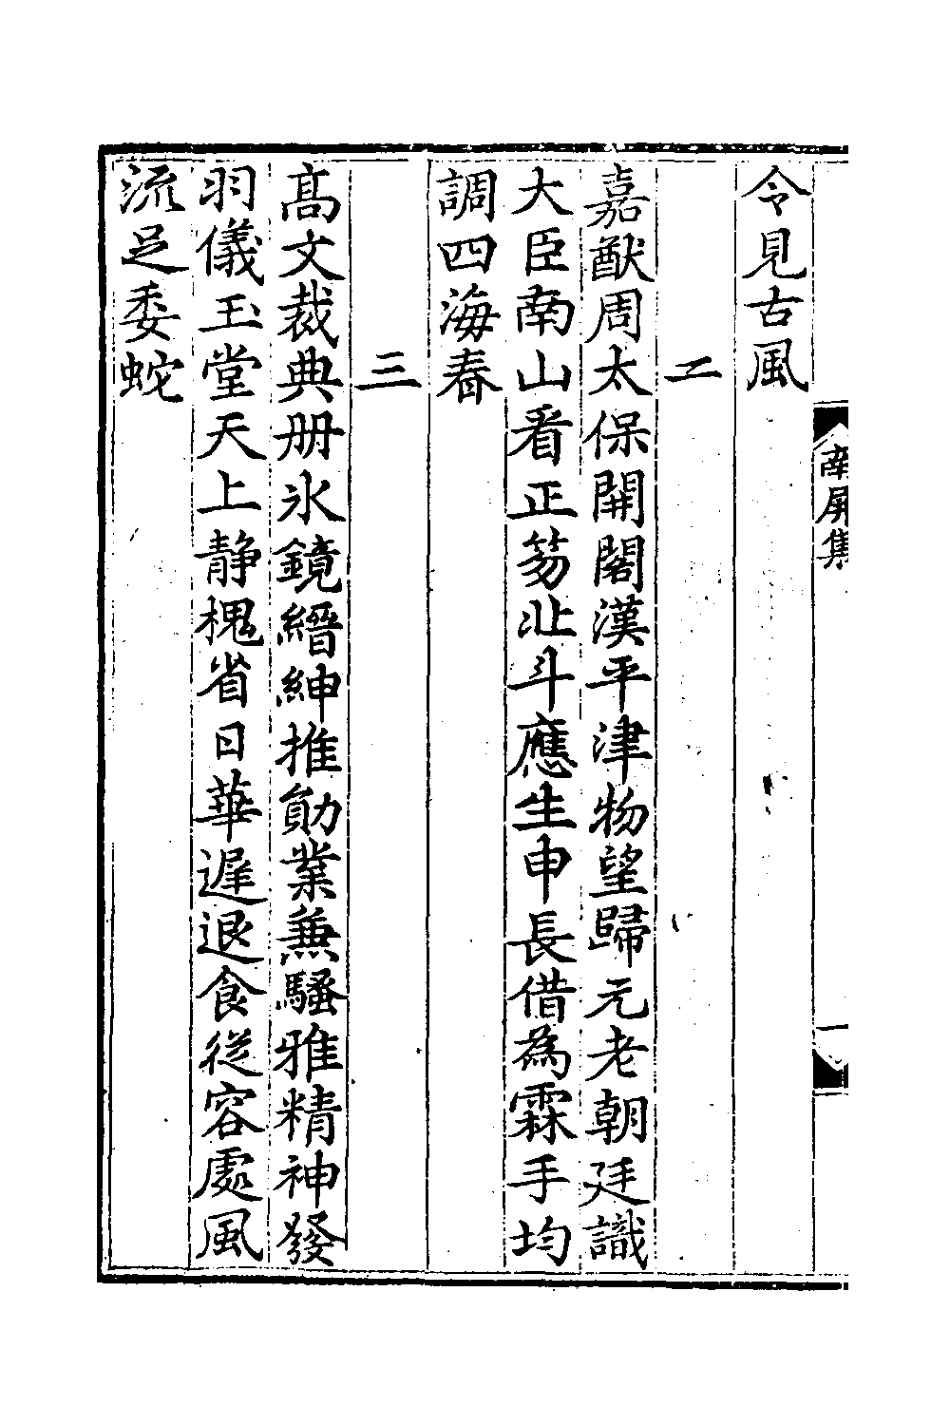 令見古風
二
嘉猷周太保開閣漢平津物望歸元老朝廷識
大臣南山看正笏北斗應生申長借為霖手均
調四海春
三
髙文裁典册氷鏡縉紳推勛業兼騷雅精神發
羽儀玉堂天上静槐省日華遲退食從容處風
流足委蛇
南屏集
一